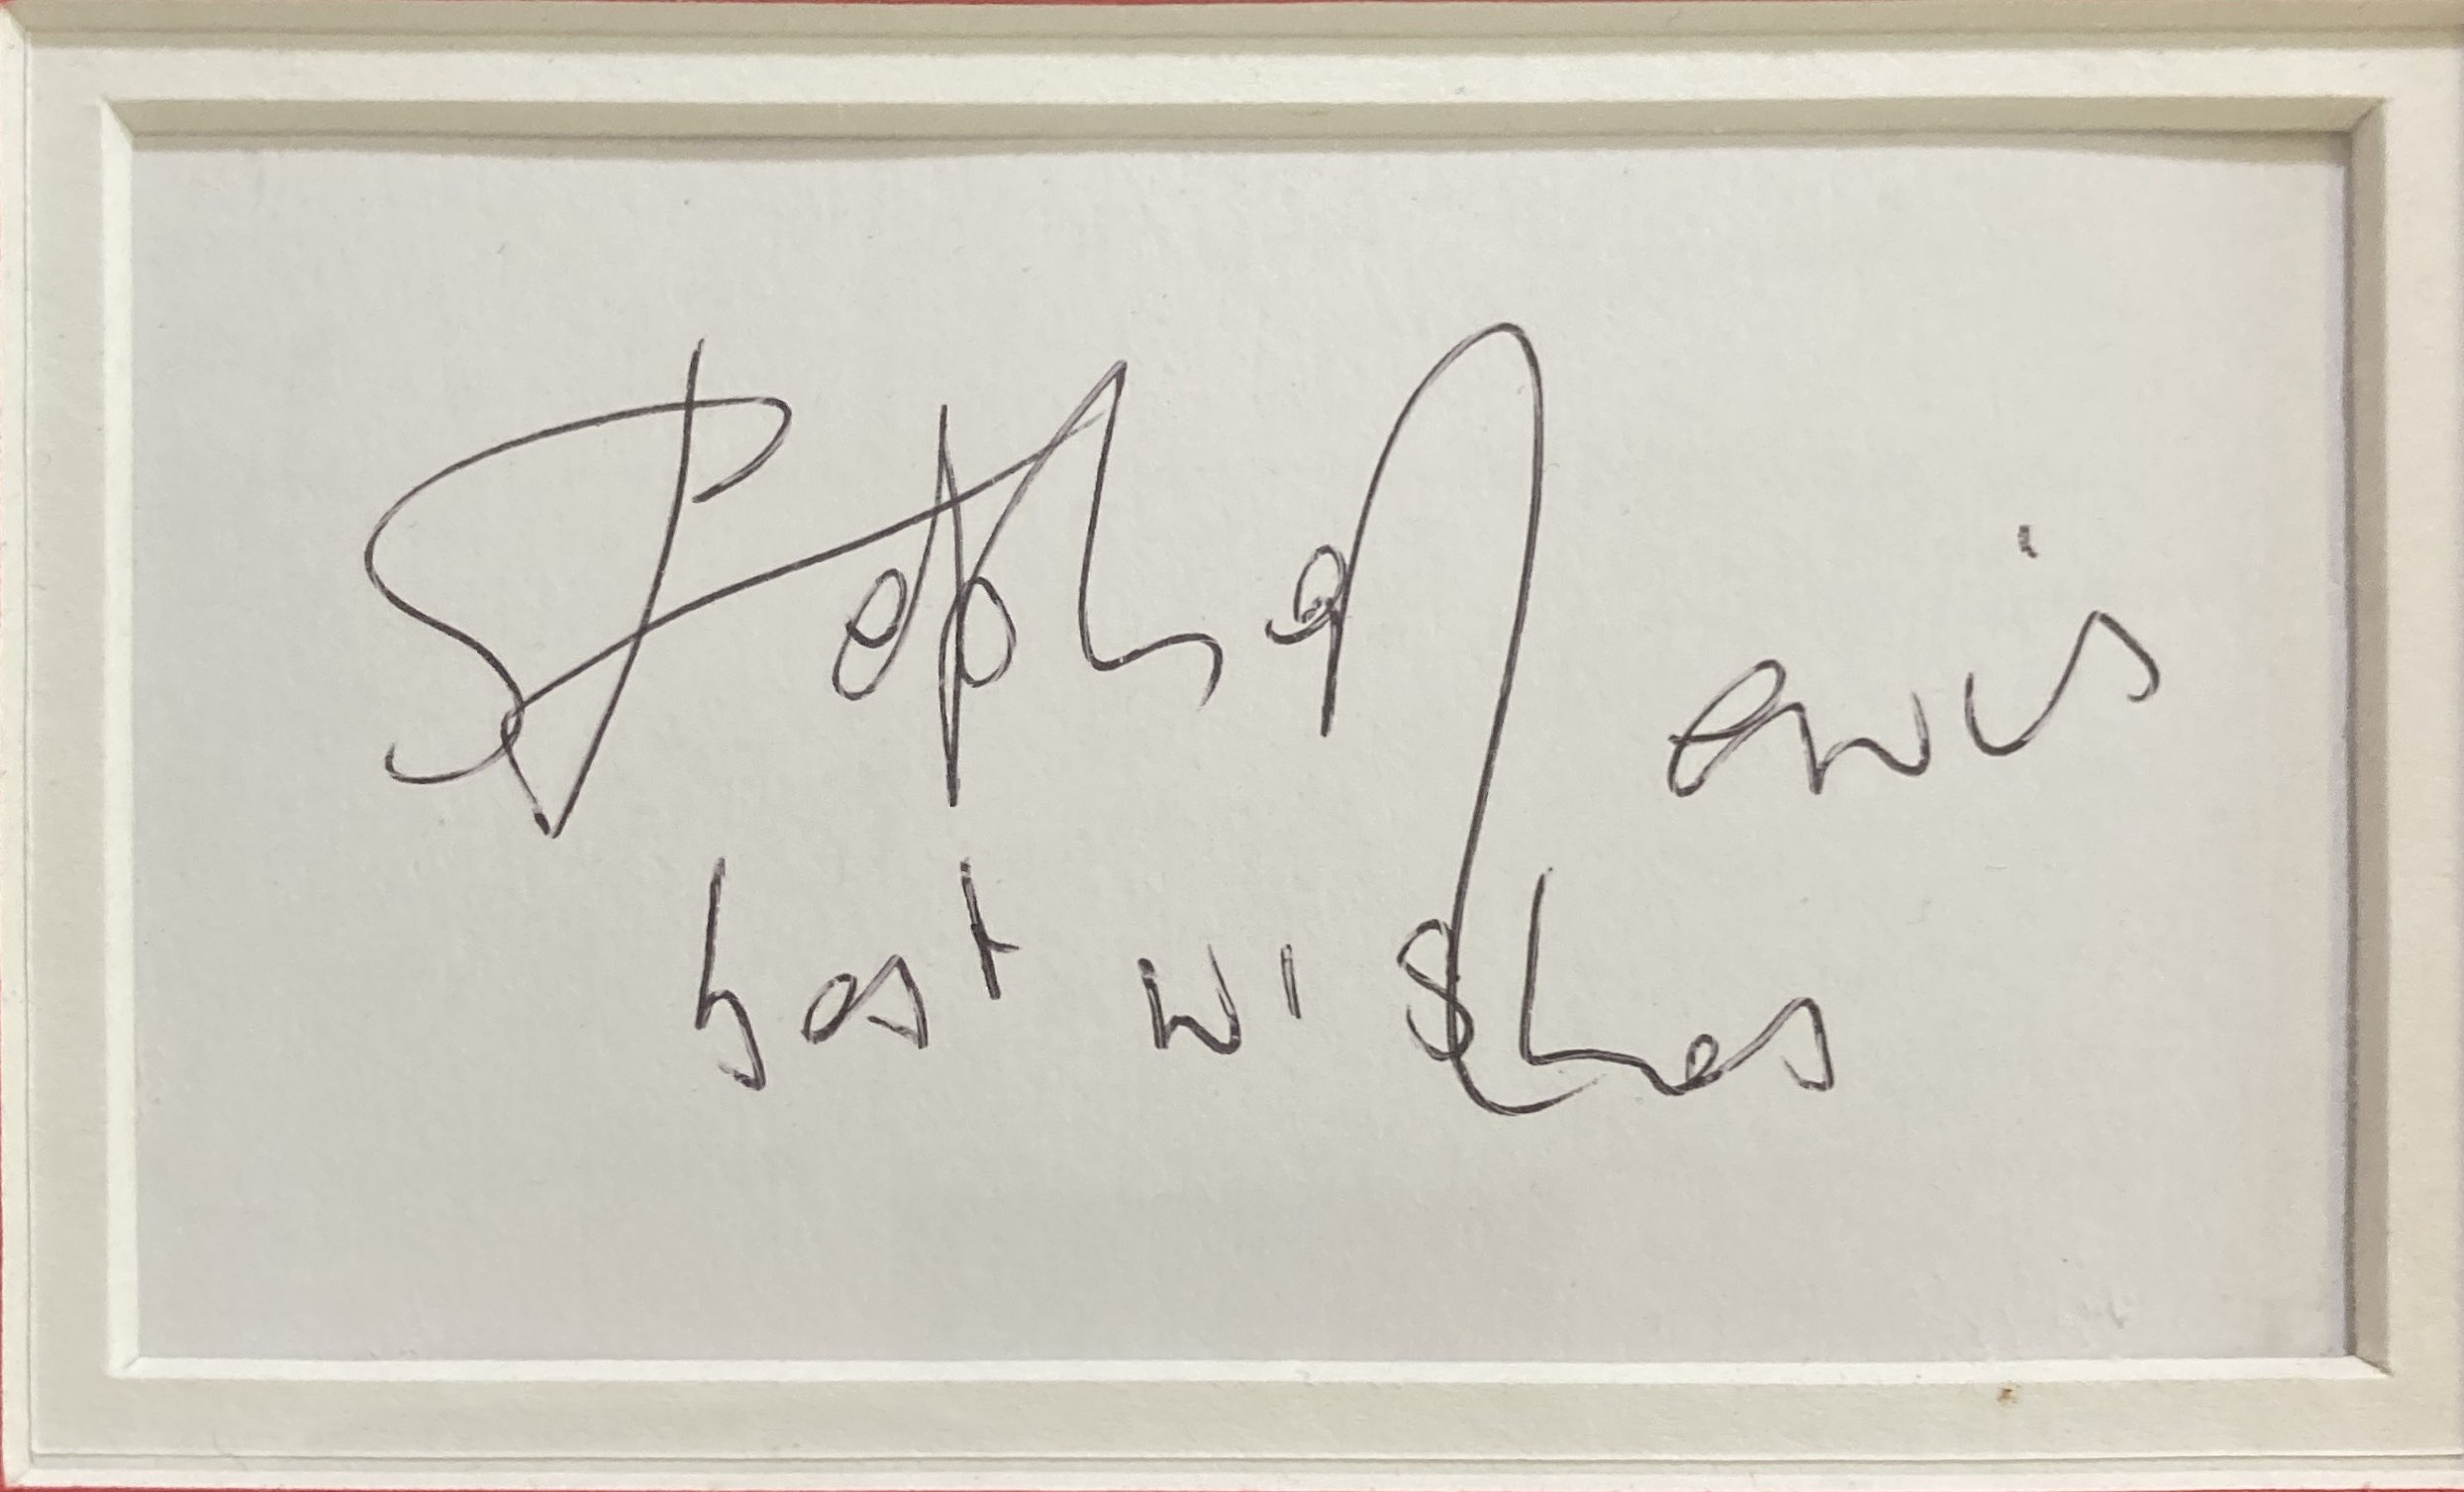 Stephen Lewis
best wishes